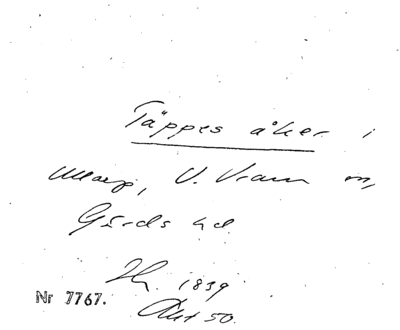 Täppes åker i
Maag, V. Vram sn,
Gärds hd
1839
Akt 50.
Nr 7767.